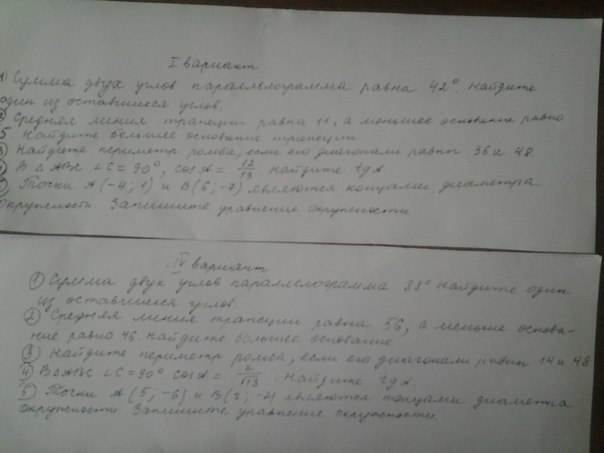 I вариант
1) Сумма двух углов параллелограмма равна 42°. Найдите
один из оставшихся углов.
2) Средняя линия трапеции равна 11, а меньшее основание равно
5. Найдите большее основание трапеции
3) Найдите периметр ромба, если его диагонали равны 36 и 48
В △ ∠C = 90°, cos A = 12/13 найдите tg A
Точки A (-4; 1) и B (6; -7) являются концами диаметра
окружности Запишите уравнение окружности
IV вариант
1) Сумма двух углов параллелограмма 88° найдите один
из оставшихся углов.
2) Средняя линия трапеции равна 56, а меньше основа-
ние равно 46. найдите большее основание
3) Найдите периметр ромба, если его диагонали равны 14 и 48
4) В △ABC ∠C = 90° cos A = 2/√13 найдите tg A.
5) Точки A (5; -6) и B ( ; -2) являются концами диаметра
окружности Запишите уравнение окружности.